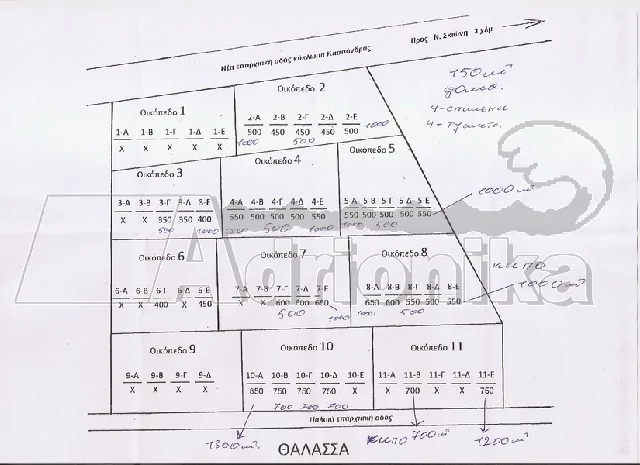 Νέα επαρχιακή οδός κύκλωμα Κασσάνδρας
Προς Ν. Σκιώνη 1χλμ
Οικόπεδο 1
1-Α 1-Β 1-Γ 1-Δ 1-Ε
X X X X X
Οικόπεδο 2
2-Α 2-Β 2-Γ 2-Δ 2-Ε
500 450 450 450 500
1000 500 1000
Οικόπεδο 3
3-Α 3-Β 3-Γ 3-Δ 3-Ε
X X 350 350 400
500 1000
Οικόπεδο 4
4-Α 4-Β 4-Γ 4-Δ 4-Ε
550 500 500 500 550
500 1000
Οικόπεδο 5
5-Α 5-Β 5-Γ 5-Δ 5-Ε
550 500 500 500 550
1000 500
1000 м²
Οικόπεδο 6
6-Α 6-Β 6-Γ 6-Δ 6-Ε
X X 400 X 450
Οικόπεδο 7
7-Α 7-Β 7-Γ 7-Δ 7-Ε
X X 600 600 650
500 1000
Οικόπεδο 8
8-Α 8-Β 8-Γ 8-Δ 8-Ε
650 600 550 500 550
1000 500
1000 м²
Οικόπεδο 9
9-Α 9-Β 9-Γ 9-Δ
X X X X
Οικόπεδο 10
10-Α 10-Β 10-Γ 10-Δ 10-Ε
850 750 750 750 X
700 700 500
Οικόπεδο 11
11-Α 11-Β 11-Γ 11-Δ 11-Ε
X 700 X X 750
Παλαιά επαρχιακή οδός
1300 м²
700 м²
1200 м²
ΘΑΛΑΣΣΑ
150 м²
4-спальни
Adrionika